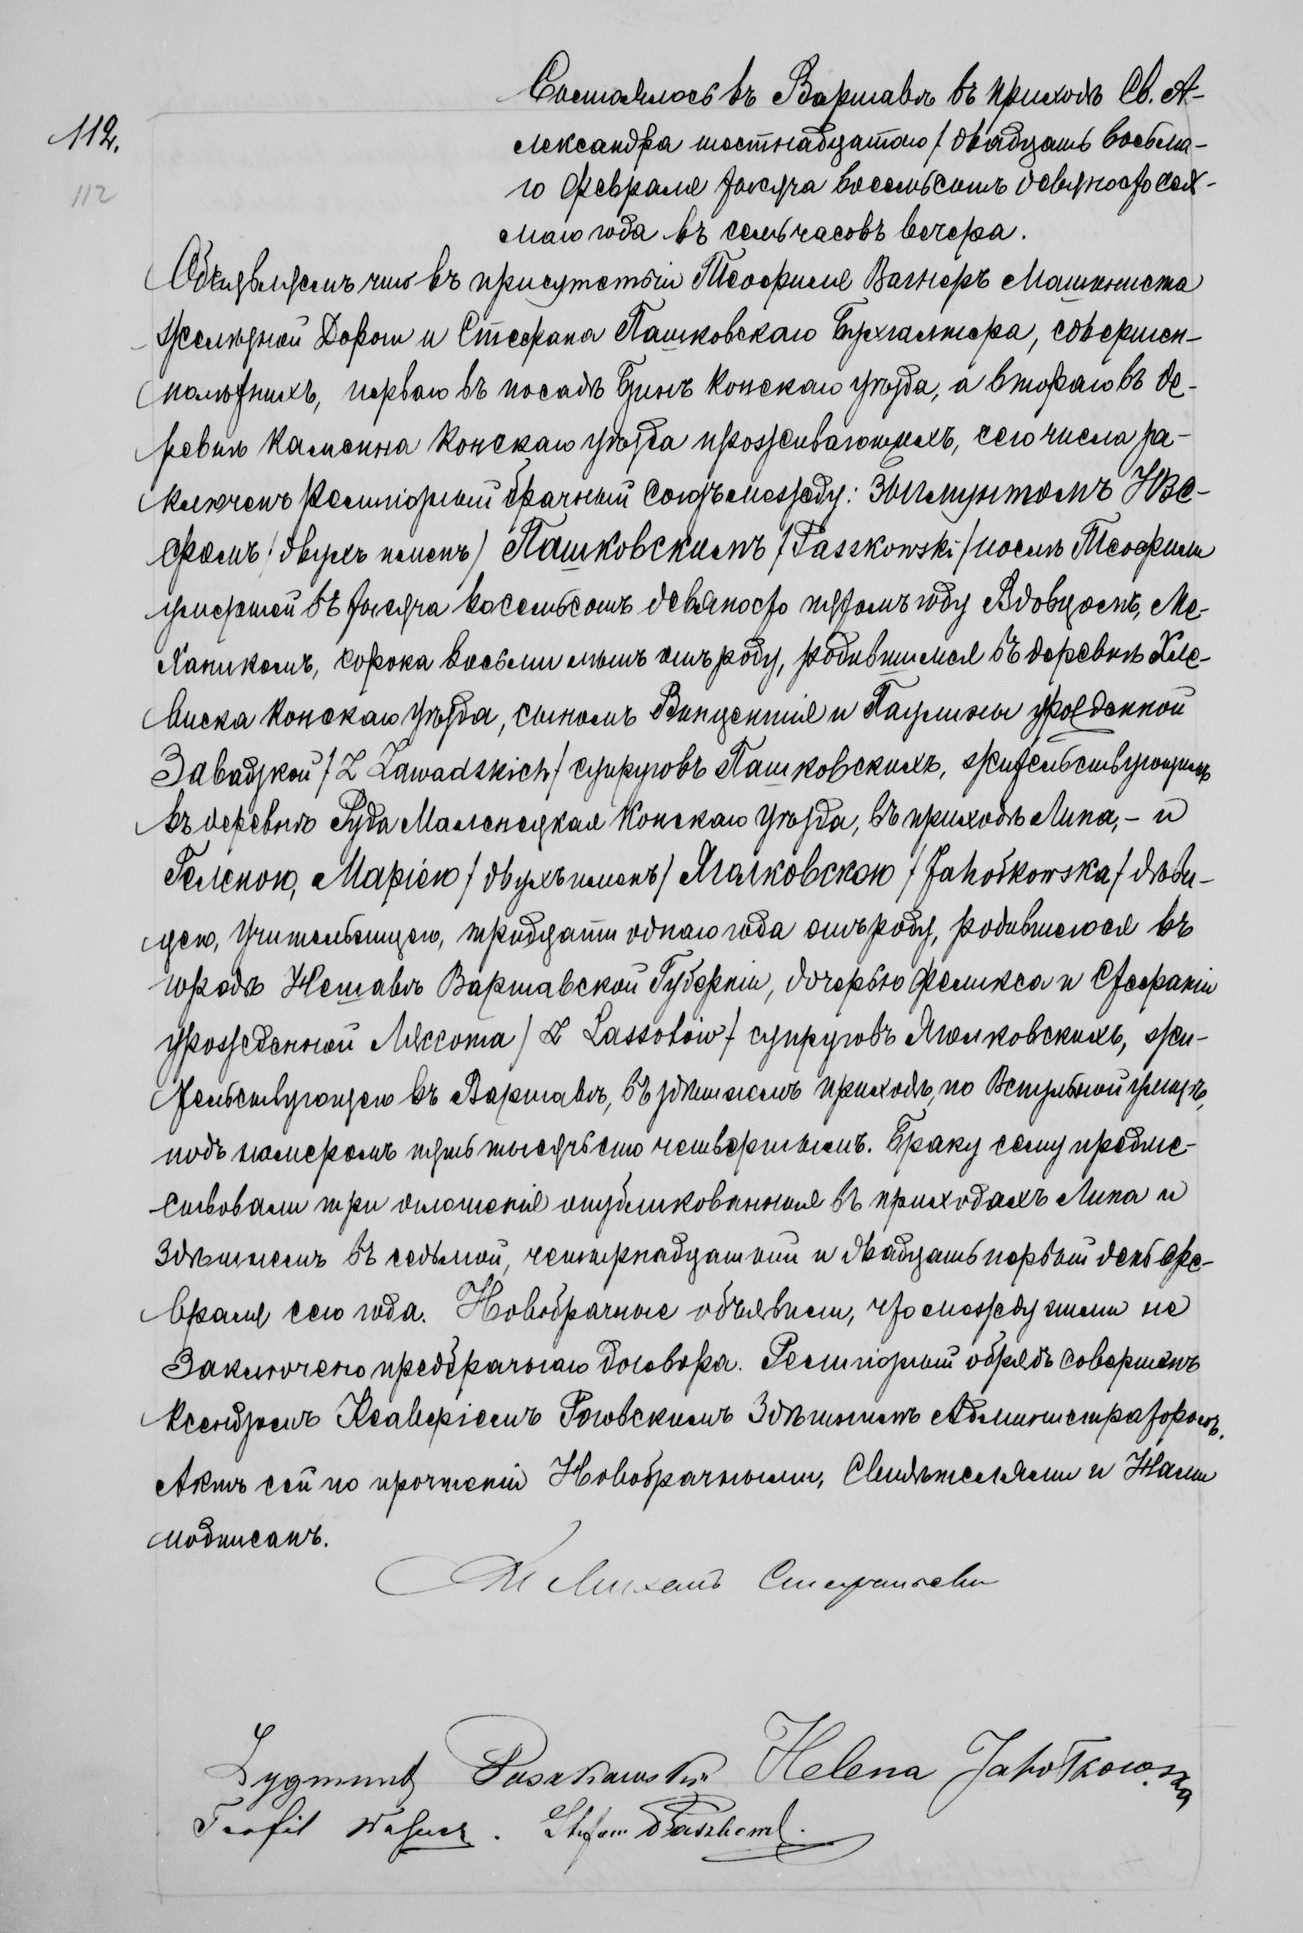 Состоялось въ Варшавѣ въ приходѣ Св. А-
112.
лександра шестнадцатаго / двадцать восьма-
го февраля тысяча восемьсотъ девяносто седь-
112
маго года въ семь часовъ вечера.
Объявляемъ что въ присутствіи Теофиля Вагнеръ Машиниста
Желѣзной Дороги и Стефана Пашковскаго Бухгалтера, совершен-
нолѣтнихъ, перваго въ посадѣ Конскаго уѣзда, а втораго въ де-
ревнѣ Конскаго уѣзда проживающихъ, сего числа за-
ключенъ религіозный брачный союзъ между: Зыгмунтомъ Юзе-
фомъ / двухъ именъ / Пашковскимъ / Paszkowski / послѣ Теофили
умершей въ тысяча восемьсотъ девяносто пятомъ году Вдовцомъ, Ме-
ханикомъ, сорока восьми лѣтъ отъ роду, родившимся въ деревнѣ Хле-
виска Конскаго уѣзда, сыномъ Винцентія и Паулины урожденной
Завадзкой / Z Zawadzkich / супруговъ Пашковскихъ, жительствующимъ
въ деревнѣ Руда Маленецкая Конскаго уѣзда, въ приходѣ Липа, – и
Геленою, Маріею / двухъ именъ / Яголковскою / Jahołkowska / дѣви-
цею, Учительницею, тридцати одного года отъ роду, родившеюся въ
городѣ Варшавской Губерніи, дочерью Феликса и Стефаніи
урожденной Лассота / Z Lassotów / супруговъ Яголковскихъ, жи-
тельствующею въ Варшавѣ, въ здѣшнемъ приходѣ, по улицѣ,
подъ номеромъ пять тысячъ сто четвертымъ. Браку сему предше-
ствовали три оглашенія опубликованныя въ приходахъ Липа и
Здѣшнемъ въ седьмой, четырнадцатый и двадцать первый день фе-
враля сего года. Новобрачные объявили, что между ними не
Заключено предбрачнаго договора. Религіозный обрядъ совершенъ
Ксендзомъ Ксаверіемъ Роговскимъ Здѣшнимъ Администраторомъ.
Актъ сей по прочтеніи Новобрачными, Свидѣтелями и Нами
подписанъ.
Zygmunt Paszkowski Helena Jahołkowska
Teofil Wagner. Stefan Paszkowski.